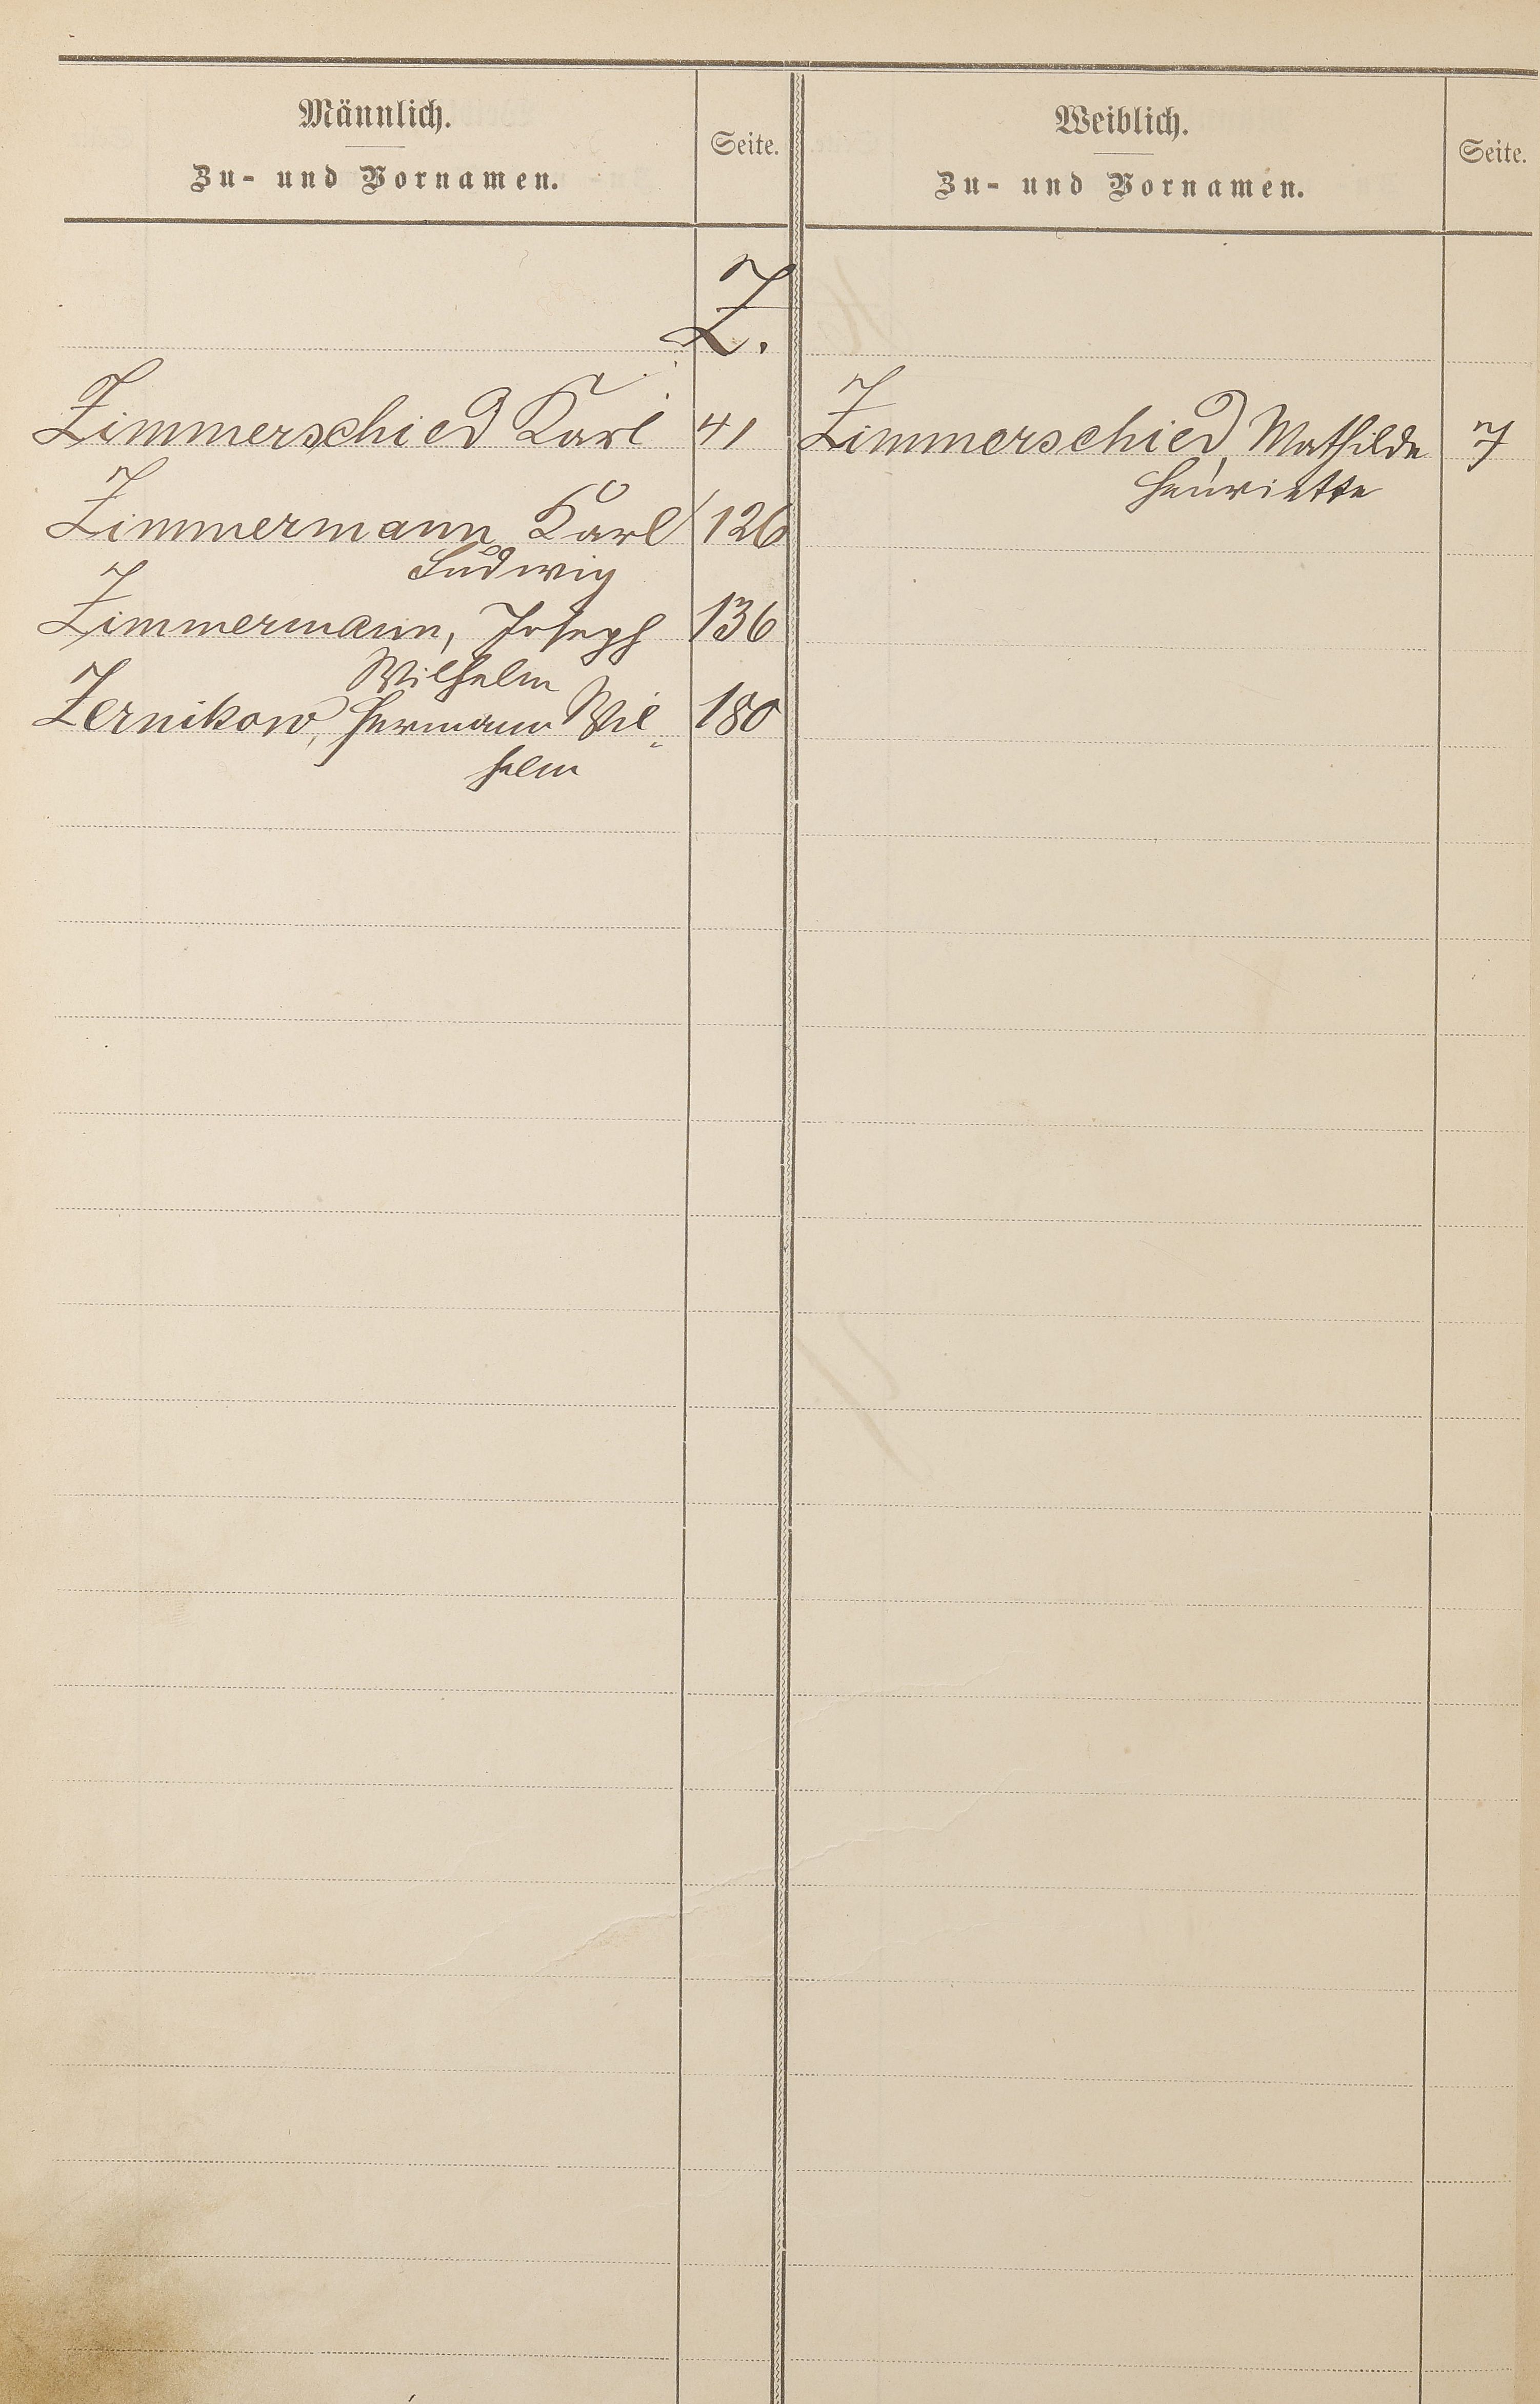 Männlich.
Zu- und Vornamen.
Seite.
Weiblich.
Zu- und Vornamen.
Seite.
Z.
Zimmerschied Karl 41
Zimmermann Karl 126
Ludwig
Zimmermann, Joseph 136
Wilhelm
Zernikow, Hermann Wil- 180
helm
Zimmerschied, Mathilde 7
Henriette